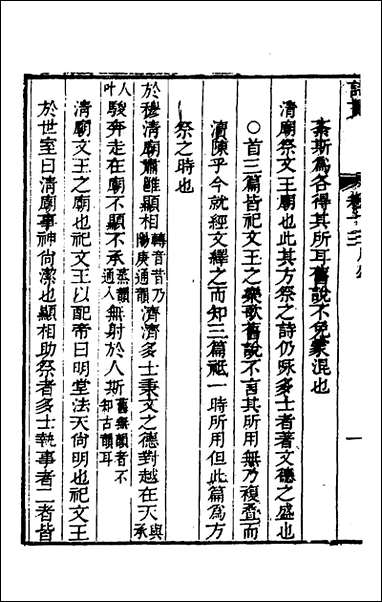 紊斯為各得其所耳舊說不免蒙混也
清廟祭文王廟也此其方祭之詩仍咏多士者著文德之盛也
○首三篇皆祀文王之樂歌舊說不言其所用無乃複疊而
瀆陳乎今就經文繹之而知三篇祗一時所用但此篇為方
祭之時也
於穆清廟肅雝顯相轉音昔乃陽庚通韻濟濟多士秉文之德對越在天與承
人叶駿奔走在廟不顯不承蒸韻通人無射於人斯舊無韻者不知古韻耳
清廟文王之廟也祀文王以配帝曰明堂法天尚明也祀文王
於世室曰清廟事神尚潔也顯相助祭者多士執事者二者皆
一